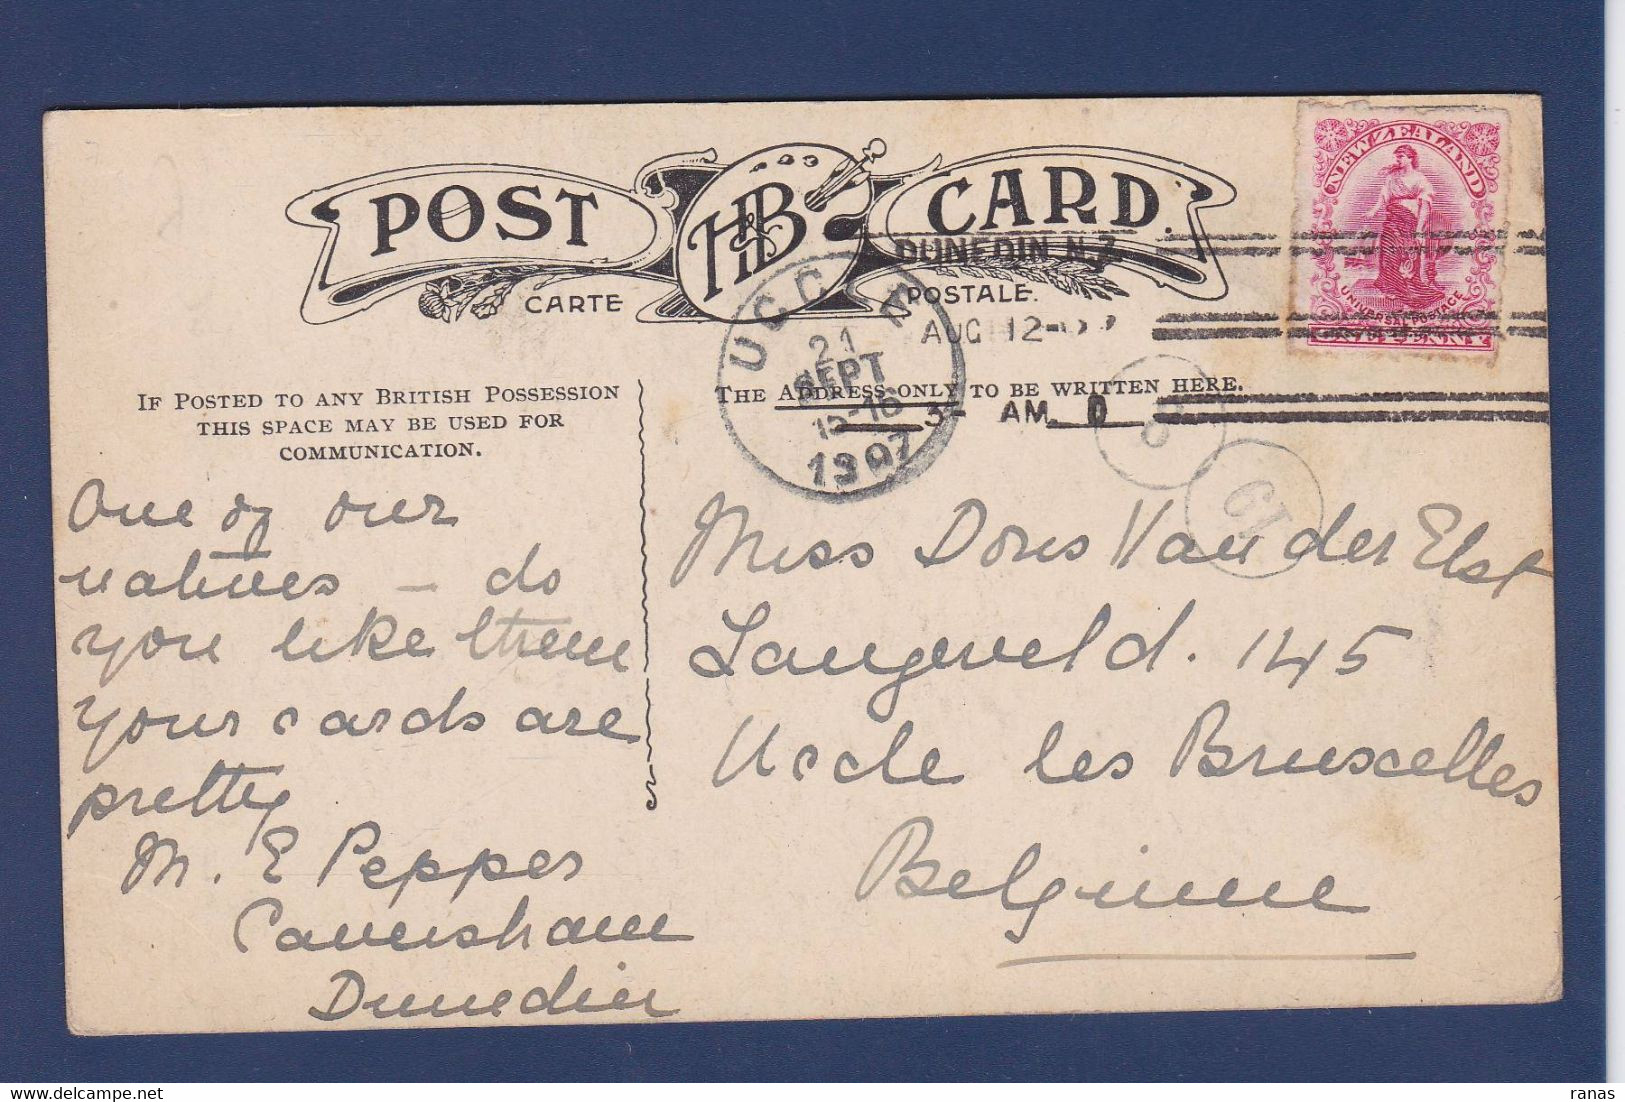 POST H&B CARD.
CARTE POSTALE.
NEW ZEALAND
UNIVERSAL POSTAGE
ONE PENNY
DUNEDIN N.Z
AUG 12
AM. D
UCCLE
21
SEPT
15-16
1907
IF POSTED TO ANY BRITISH POSSESSION
THIS SPACE MAY BE USED FOR
COMMUNICATION.
THE ADDRESS ONLY TO BE WRITTEN HERE.
One of our
natives – do
you like them
your cards are
pretty
M. E Pepper
Caversham
Dunedin
Miss Doris Van der Elst
Langeveld. 145
Uccle les Bruxelles
Belgium
ranas